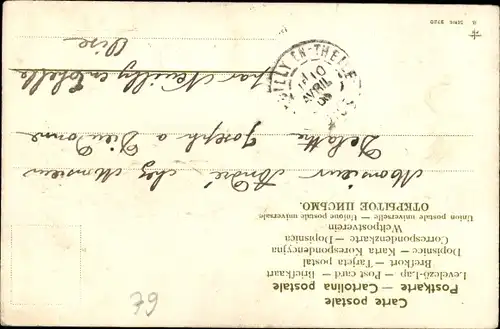 Carte postale
Postkarte — Cartolina postale
Levelezö-Lap — Post card — Briefkaart
Brefkort — Tarjeta postal
Dopisnice — Karta Korespondencyjna
Correspondenzkarte — Dopisnica
Weltpostverein
Union postale universelle — Unique postale universale
ОТКРЫТОЕ ПИСЬМО.
Monsieur André chez Monsieur
Delattre Joseph a Dieudonne
par Neuilly en Thelle
Oise
NEUILLY-EN-THELLE
10
AVRIL
79
Serie 2720